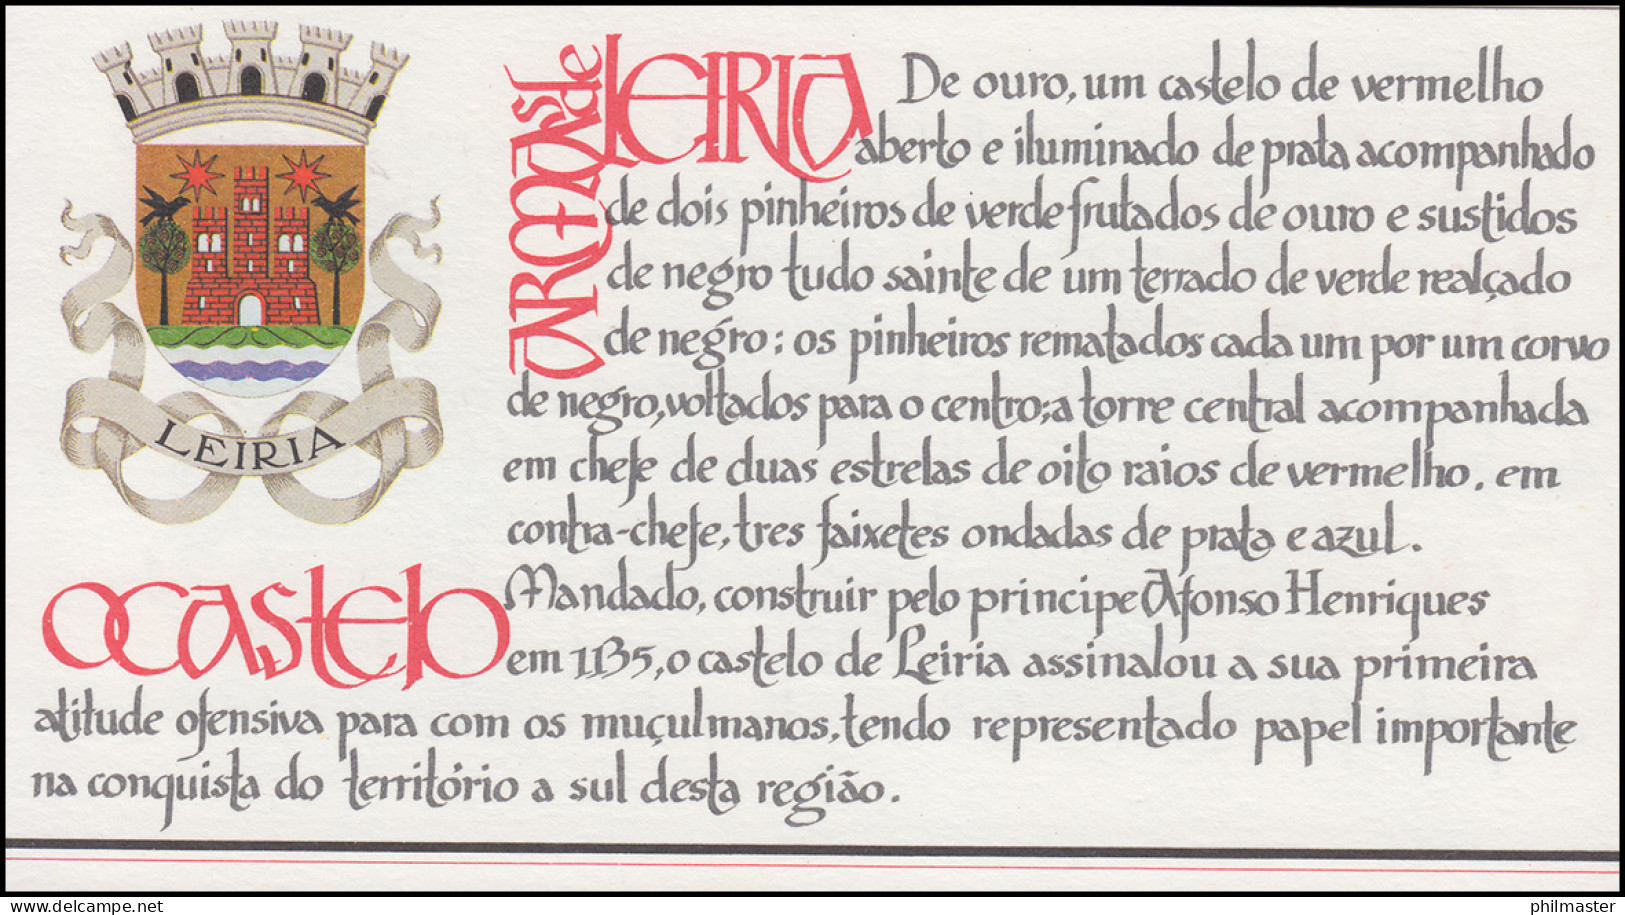 LEIRIA
ARMAS de LEIRIA
De ouro, um castelo de vermelho
aberto e iluminado de prata acompanhado
de dois pinheiros de verde frutados de ouro e sustidos
de negro tudo sainte de um terrado de verde realçado
de negro: os pinheiros rematados cada um por um corvo
de negro, voltados para o centro; a torre central acompanhada
em chefe de duas estrelas de oito raios de vermelho. em
contra-chefe, tres faixetes ondadas de prata e azul.
O CASTELO
Mandado, construir pelo principe Afonso Henriques
em 1135, o castelo de Leiria assinalou a sua primeira
atitude ofensiva para com os muçulmanos, tendo representado papel importante
na conquista do território a sul desta região.
www.delcampe.net
philmaster